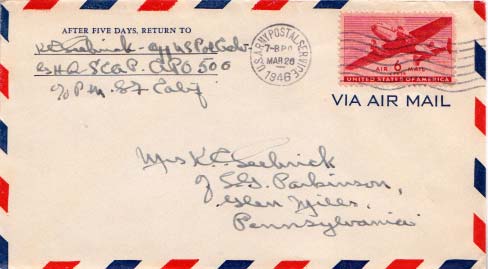 AFTER FIVE DAYS, RETURN TO
GHQ-SCAP. APO 500
c/o P.M. S.F. Calif
U.S. ARMY POSTAL SERVICE
MAR 26
1946
AIR 6 MAIL
UNITED STATES OF AMERICA
VIA AIR MAIL
Mrs K.C.
Parkinson,
Glen Mills,
Pennsylvania